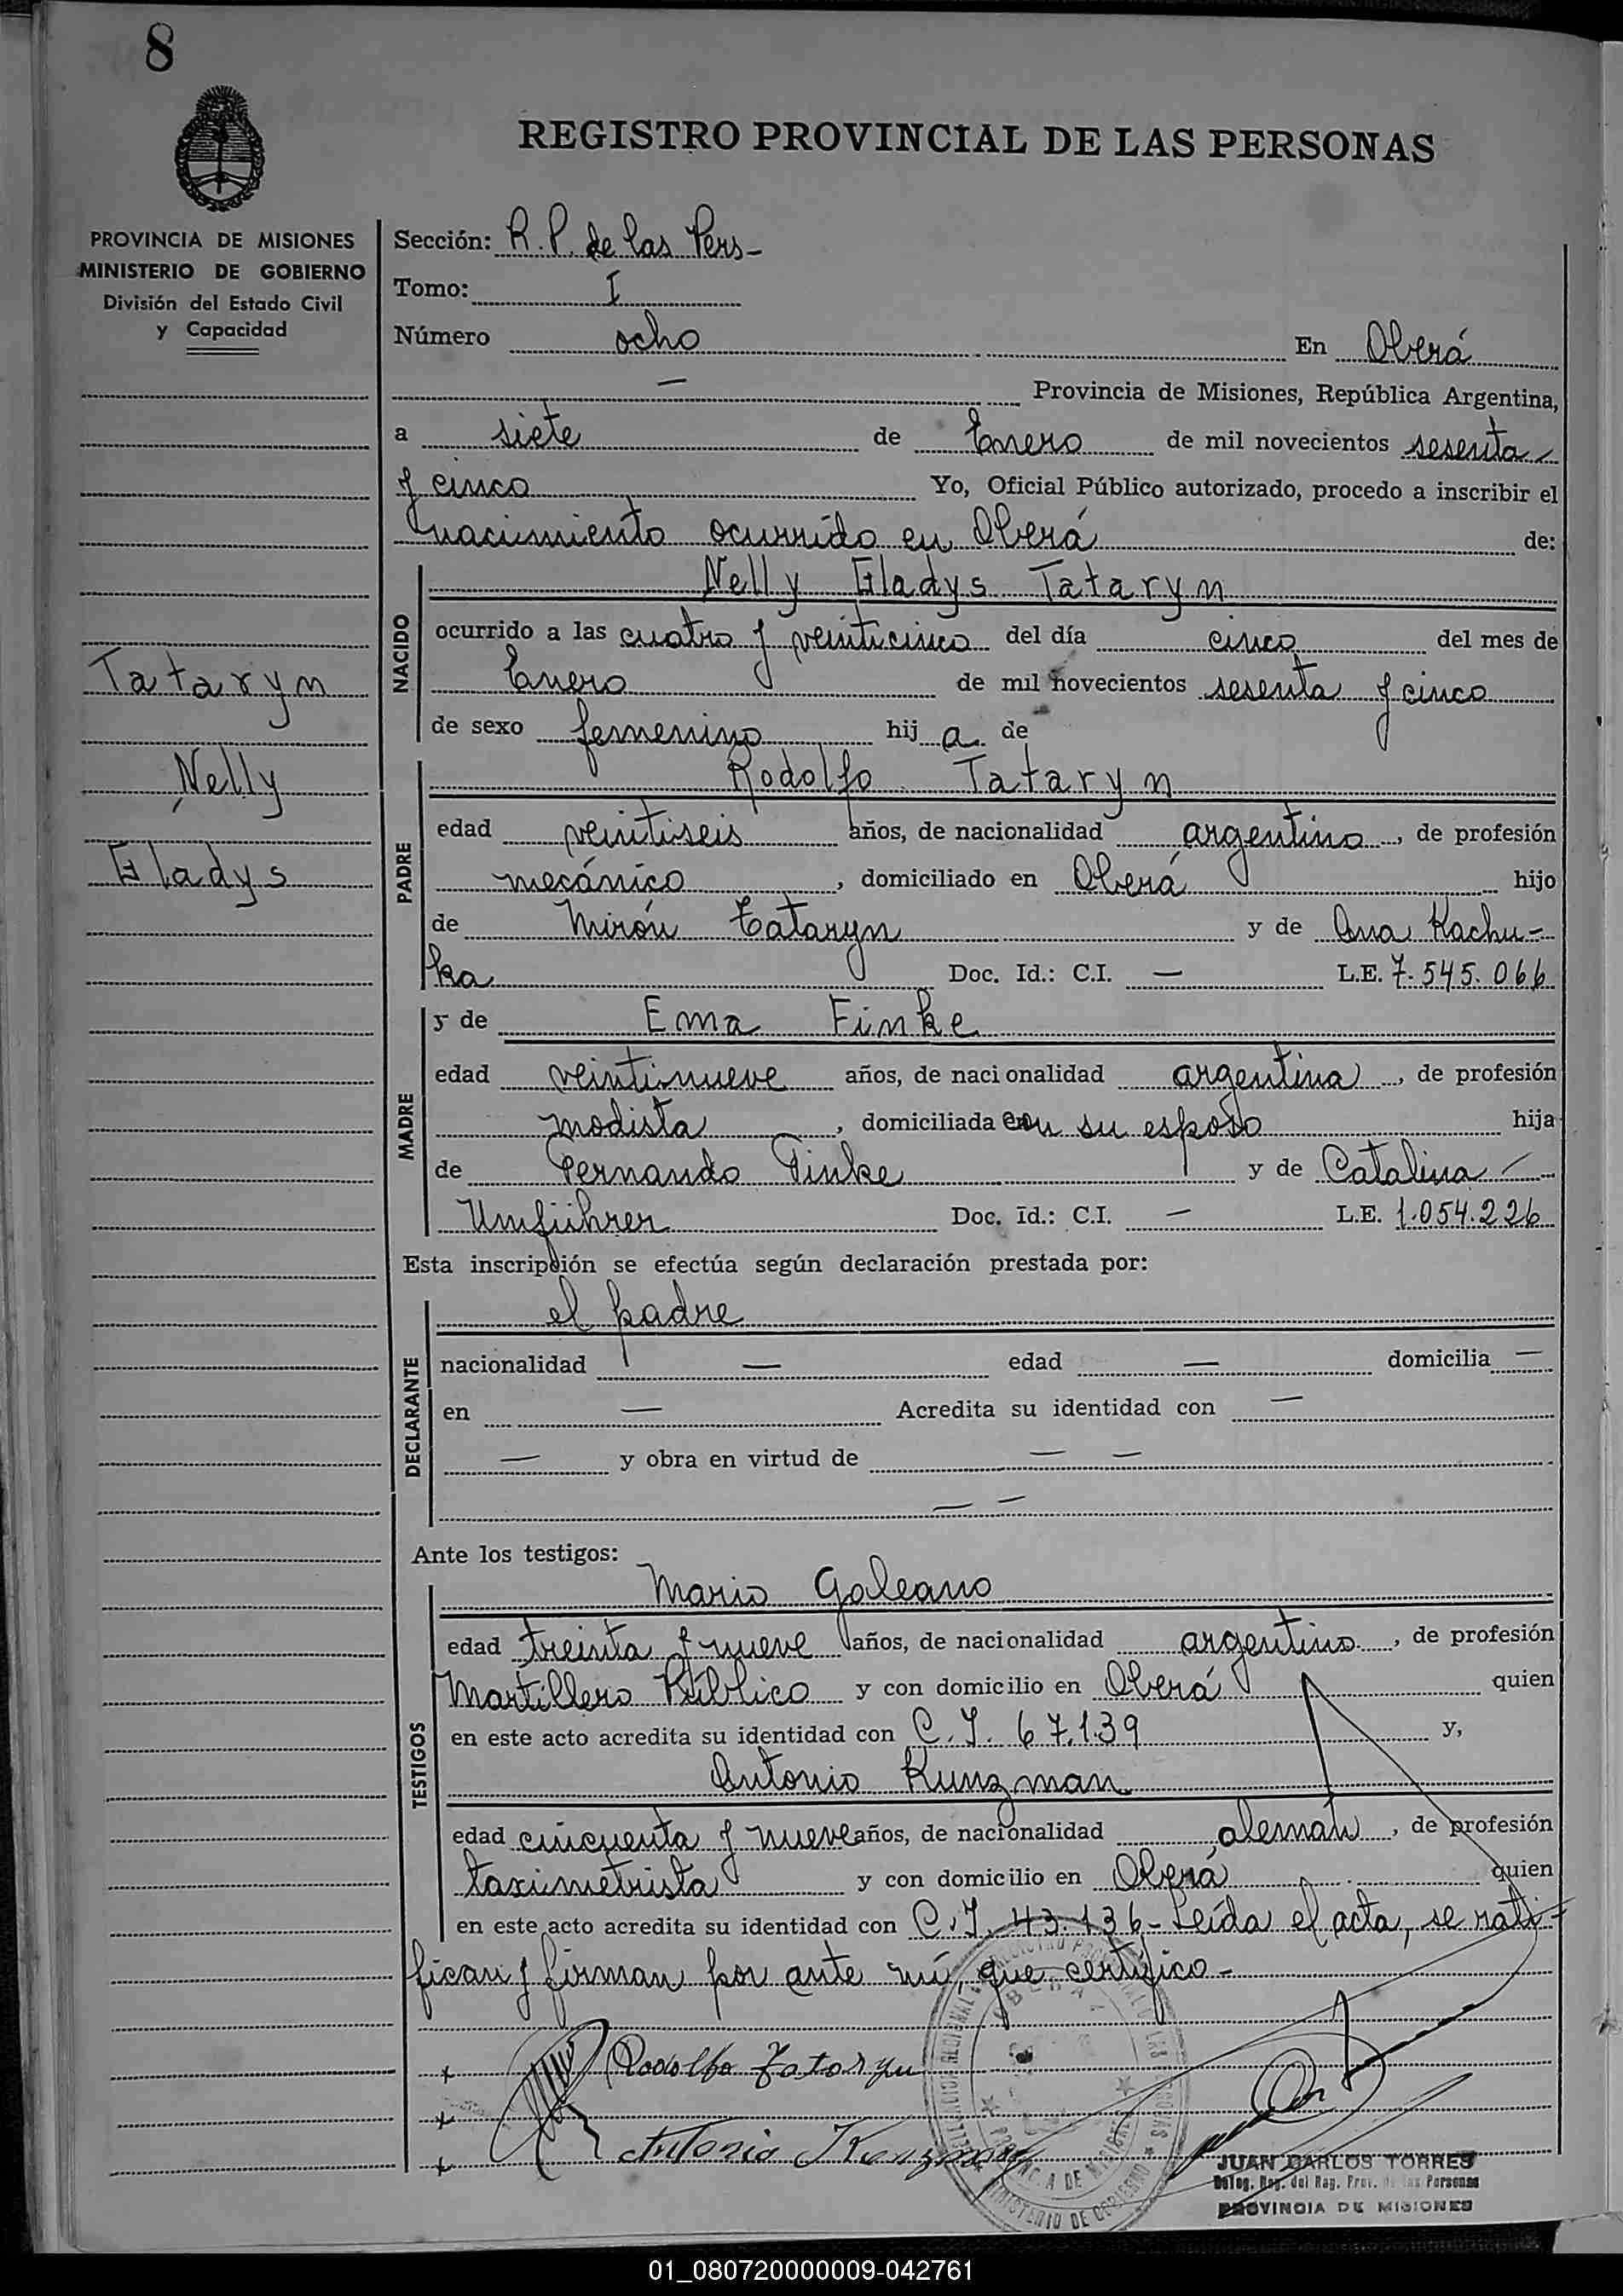 8
REGISTRO PROVINCIAL DE LAS PERSONAS
PROVINCIA DE MISIONES
MINISTERIO DE GOBIERNO
División del Estado Civil
y Capacidad
Tataryn
Nelly
Gladys
Sección: R. P. de las Pers-
Tomo: I
Número ocho En Oberá
— Provincia de Misiones, República Argentina,
a siete de Enero de mil novecientos sesenta
y cinco Yo, Oficial Público autorizado, procedo a inscribir el
nacimiento ocurrido en Oberá de:
NACIDO
Nelly Gladys Tataryn
ocurrido a las cuatro y veinticinco del día cinco del mes de
Enero de mil novecientos sesenta y cinco
de sexo femenino hij a de
PADRE
Rodolfo Tataryn
edad veintiseis años, de nacionalidad argentino, de profesión
mecánico, domiciliado en Oberá hijo
de Mirón Tataryn y de Ana Kachu-
ka Doc. Id.: C.I. — L.E. 7.545.066
MADRE
y de Ema Finke
edad veintinueve años, de nacionalidad argentina, de profesión
modista, domiciliada con su esposo hija
de Fernando Finke y de Catalina —
Umführer Doc. Id.: C.I. — L.E. 1.054.226
Esta inscripción se efectúa según declaración prestada por:
DECLARANTE
el padre
nacionalidad — edad — domicilia —
en — Acredita su identidad con —
— y obra en virtud de — —
— —
Ante los testigos:
TESTIGOS
Mario Galeano
edad treinta y nueve años, de nacionalidad argentino, de profesión
Martillero Público y con domicilio en Oberá quien
en este acto acredita su identidad con C.I. 67.139 y,
Antonio Kunzman
edad cincuenta y nueve años, de nacionalidad alemán, de profesión
taximetrista y con domicilio en Oberá quien
en este acto acredita su identidad con C.I. 43.136- Leída el acta, se rati-
fican y firman por ante mí, que certifico-
x Rodolfo Tataryn
x
x Antonio Kunzman
OBERA
PROVINCIA DE MISIONES
MINISTERIO DE GOBIERNO
JUAN CARLOS TORRES
Deleg. Reg. del Reg. Prov. de las Personas
PROVINCIA DE MISIONES
01_080720000009-042761